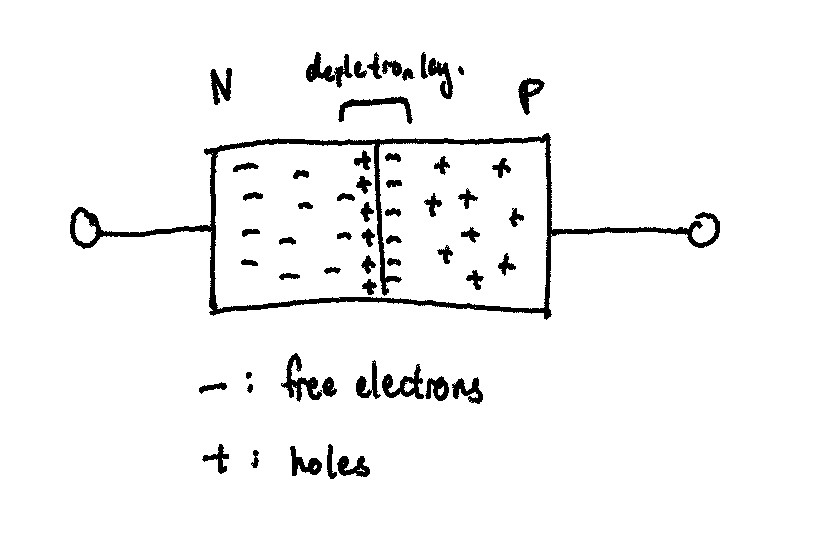 depletion lay.
N P
- : free electrons
+ : holes